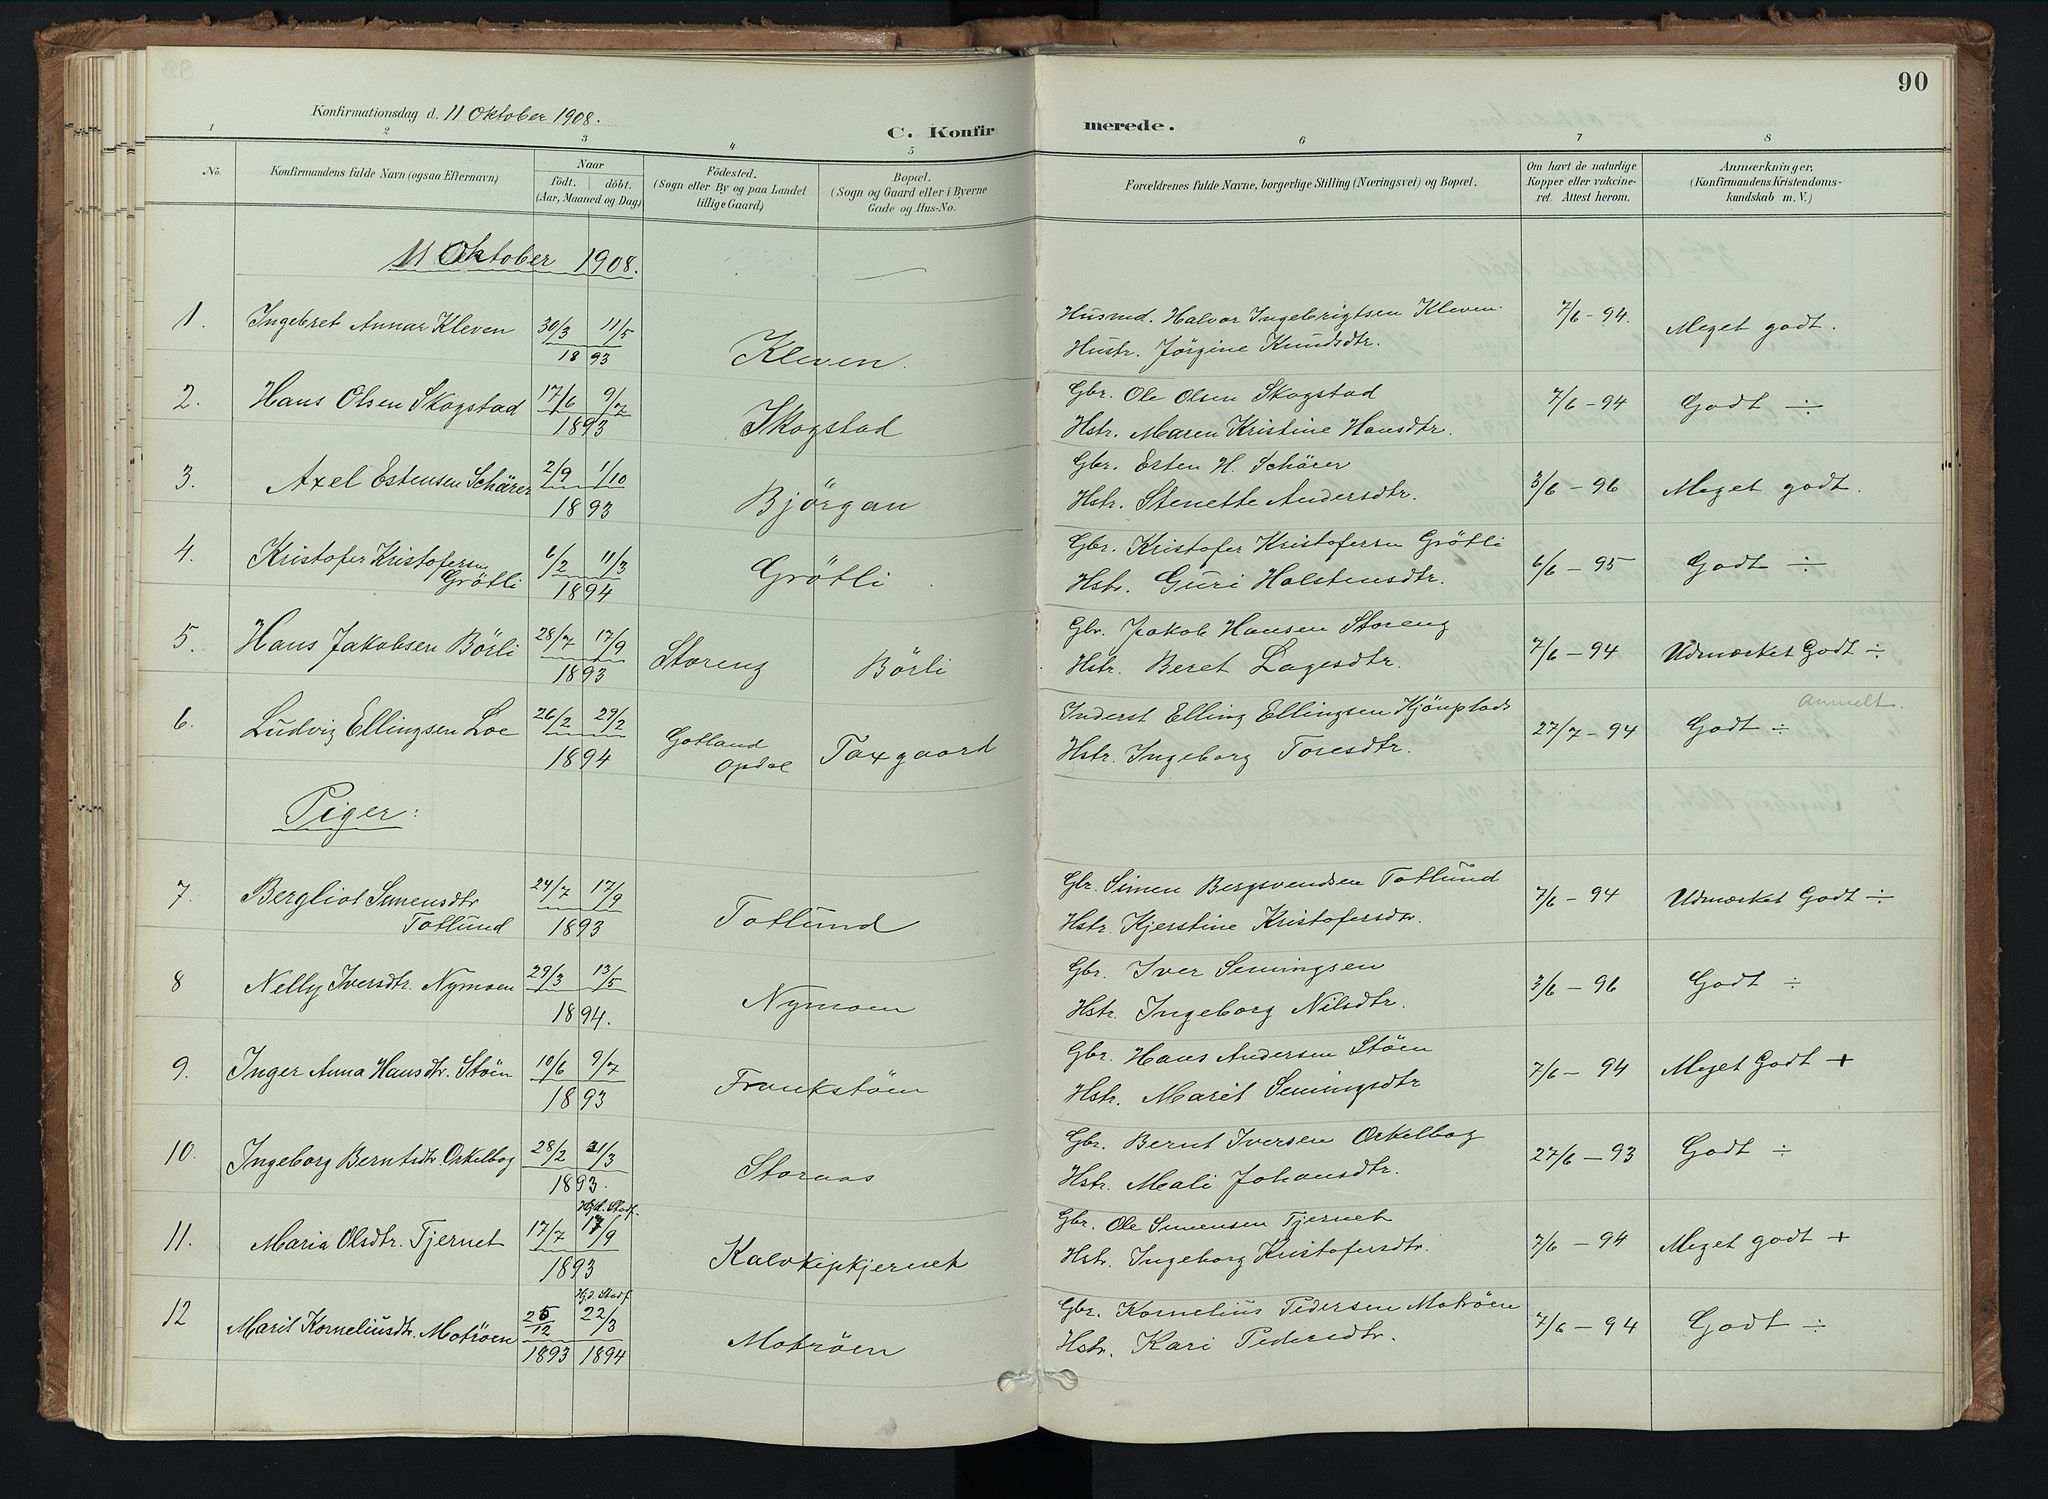 90
Konfirmationsdag d. 11 Oktober 1908.
C. Konfirmerede.
1 2 3 4 5 6 7 8
No.
Konfirmandens fulde Navn (ogsaa Efternavn).
Naar
født. døbt.
(Aar, Maaned og Dag)
Födested.
(Sogn eller By og paa Landet
tillige Gaard)
Bopæl.
(Sogn og Gaard eller i Byerne
Gade og Hus-No.
Forældrenes fulde Navne, borgerlige Stilling (Næringsvei) og Bopæl.
Om havt de naturlige
Kopper eller vakcine-
ret. Attest herom.
Anmærkninger,
(Konfirmandens Kristendoms-
kundskab m. V.)
11 Oktober 1908.
1. Ingebret Annar Kleven 30/3 11/5 1893 Kleven. Husmd. Halvor Ingebrigtsen Kleven 7/6 - 94. Meget godt.
Hustr. Jørgine Knudsdtr.
2. Hans Olsen Skogstad 17/6 9/7 1893 Skogstad Gbr. Ole Olsen Skogstad 7/6 - 94 Godt ÷
Hstr. Maren Kristine Hansdtr.
3. Axel Estensen Schärer 2/9 1/10 1893 Bjørgan Gbr. Esten H. Schärer 3/6 - 96 Meget godt.
Hstr. Stenette Andersdtr.
4. Kristofer Kristofersen
Grötli 6/2 11/3 1894 Grötli. Gbr. Kristofer Kristofersen Grötli 6/6 - 95 Godt ÷
Hstr. Guri Holstensdtr.
5. Hans Jakobsen Börli 28/7 17/9 1893 Storeng Börli Gbr. Jakob Hansen Storeng 7/6 - 94 Udmærket Godt ÷
Hstr. Beret Lagesdtr.
6. Ludvig Ellingsen Loe 26/2 29/2 1894 Gotland
Opdal Taxgaard Inderst Elling Ellingsen 27/7 - 94 Godt ÷
Anmelt.
Hstr. Ingeborg Toresdtr.
Piger:
7. Bergliot Simensdtr
Totlund 24/7 17/9 1893 Totlund Gbr. Simen Bergsvendsen Totlund 7/6 - 94 Udmærket Godt ÷
Hstr. Kjerstine Kristofersdtr.
8 Nelly Iversdtr. Nymoen 29/3 13/5 1894. Nymoen Gbr. Iver Semingsen 3/6 - 96 Godt ÷
Hstr. Ingeborg Nilsdtr.
9. Inger Anna Hansdtr. Støen 10/6 9/7 1893 Frankstøen Gbr. Hans Andersen Støen 7/6 - 94 Meget Godt +
Hstr. Marit Semingsdtr
10. Ingeborg Berntsdtr. Orkelbog 28/2 21/3 1893. Storaas Gbr. Bernt Iversen Orkelbog 27/6 - 93 Godt ÷
Hstr. Mali Johansdtr.
11. Maria Olsdtr. Tjernet 17/7 17/9 1893 Kalvkipkjernet Gbr. Ole Simensen Tjernet 7/6 - 94 Meget godt +
Hstr. Ingeborg Kristofersdtr.
12 Marit Korneliusdtr. Motrøen 25/12 1893 22/3 1894 Motrøen Gbr. Kornelius Pedersen Motrøen 7/6 - 94 Godt ÷
Hstr. Kari Pedersdtr.